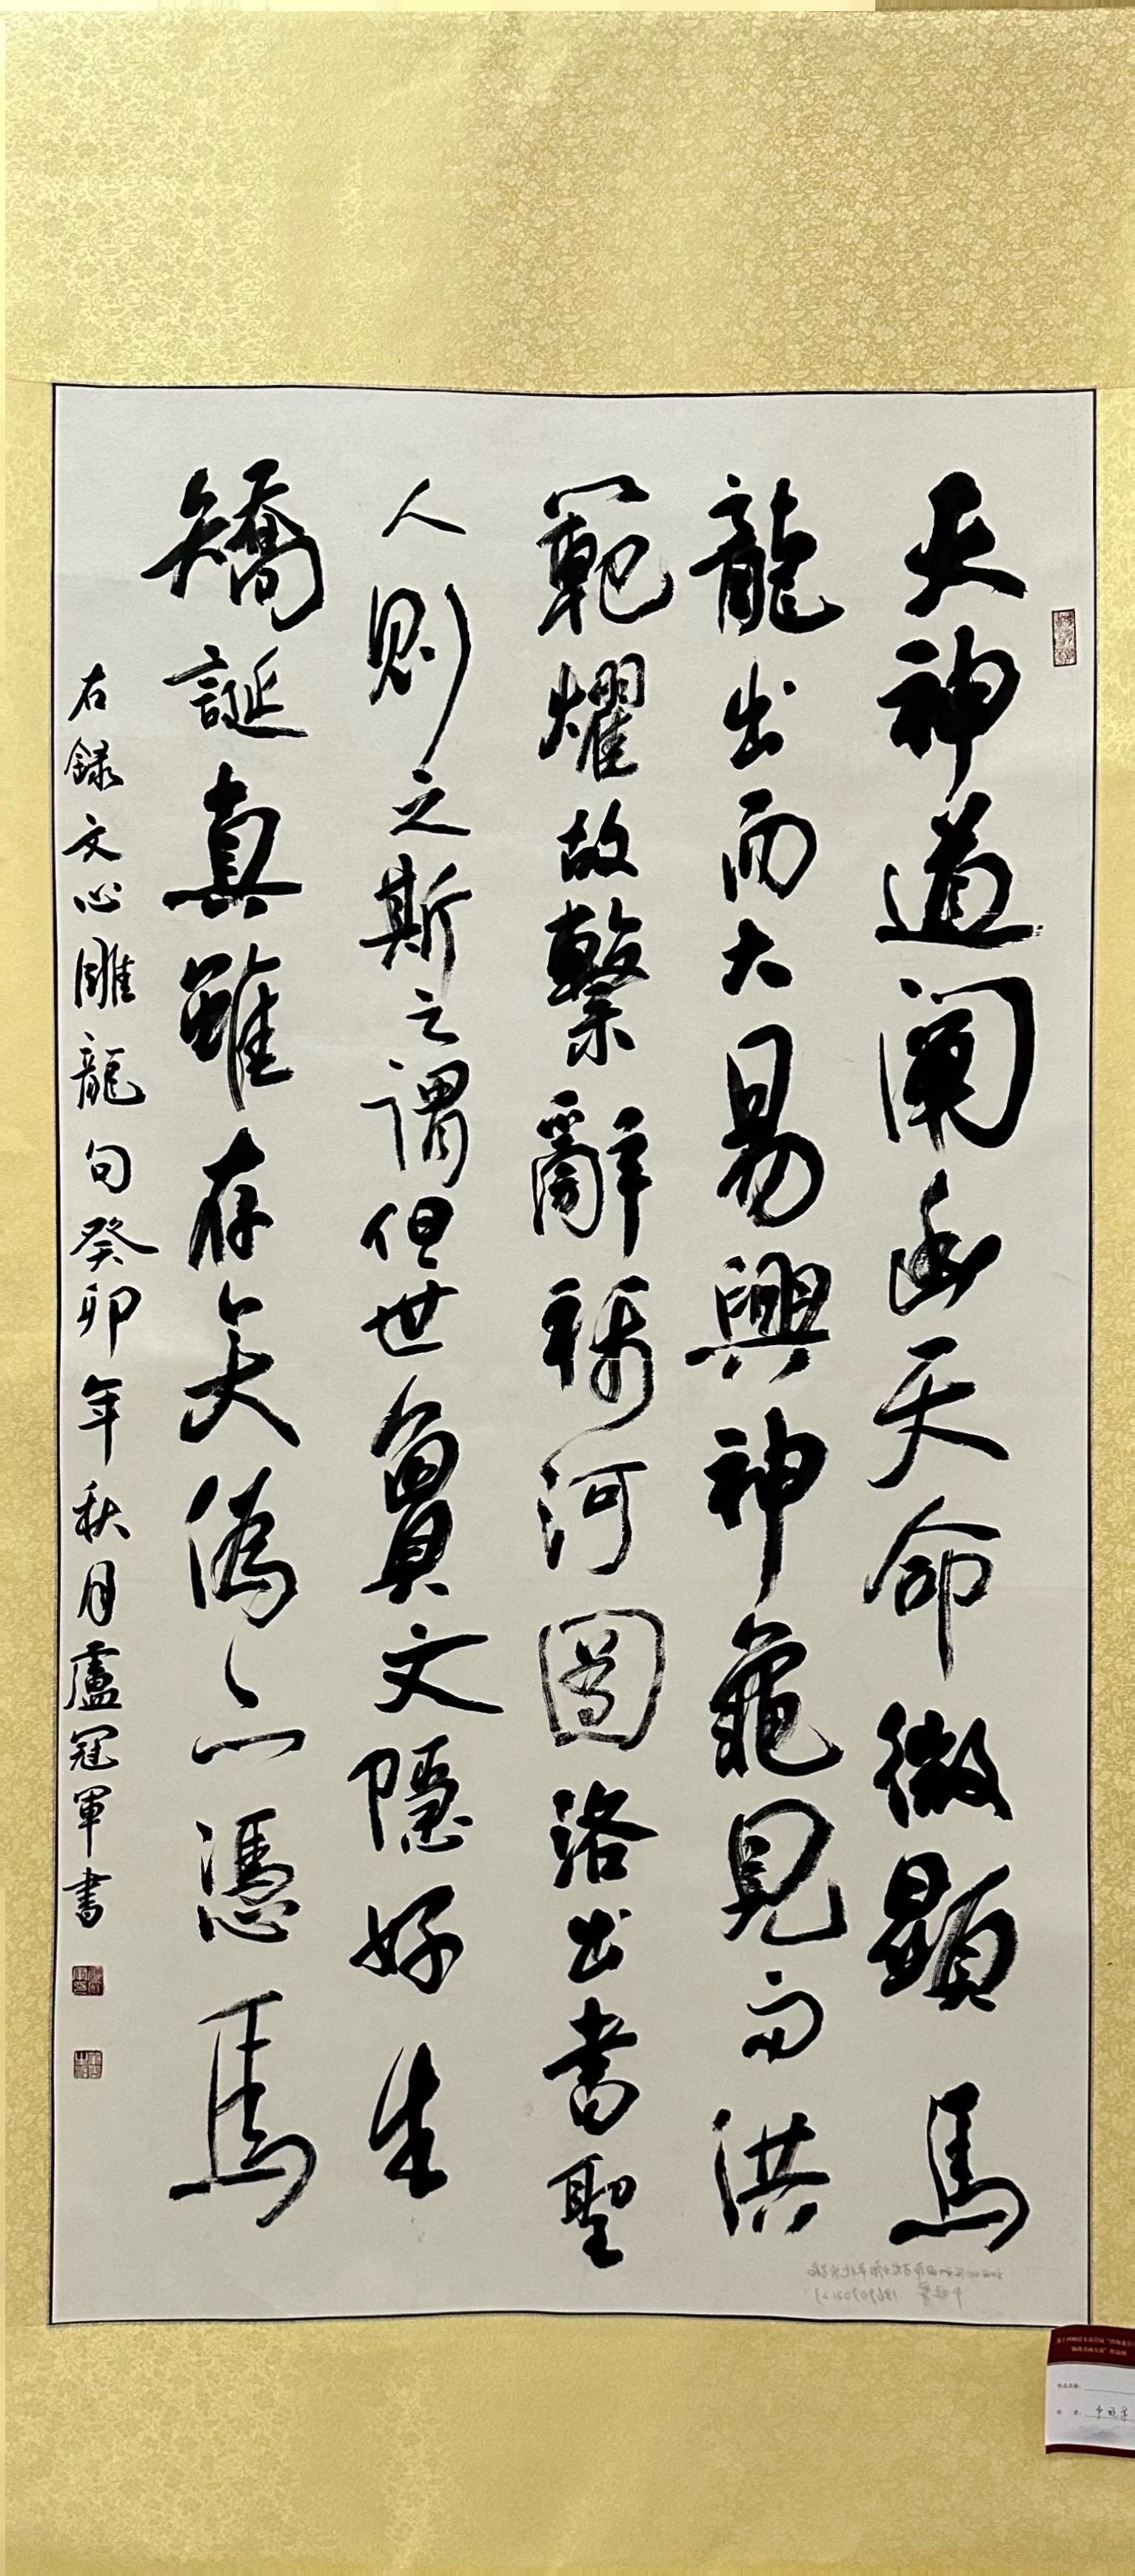 夫神道闡幽天命微顯馬
龍出而大易興神龜見而洪
範燿故繫辭稱河圖洛出書聖
人則之斯之謂但世夐文隱好生
矯誕真雖存矣偽亦憑焉
右録文心雕龍句癸卯年秋月盧冠軍書